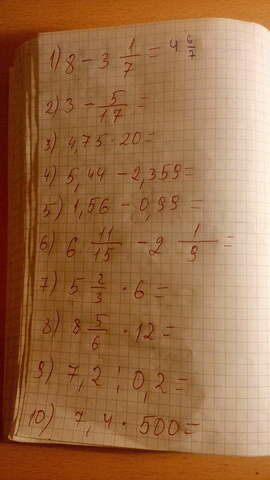 1) 8 - 3 1/7 = 4 6/7
2) 3 - 5/17 =
3) 4,75 · 20 =
4) 5,44 - 2,359 =
5) 1,56 - 0,99 =
6) 6 11/15 - 2 1/9 =
7) 5 2/3 · 6 =
8) 8 5/6 · 12 =
9) 7,2 : 0,2 =
10) 7,4 · 500 =